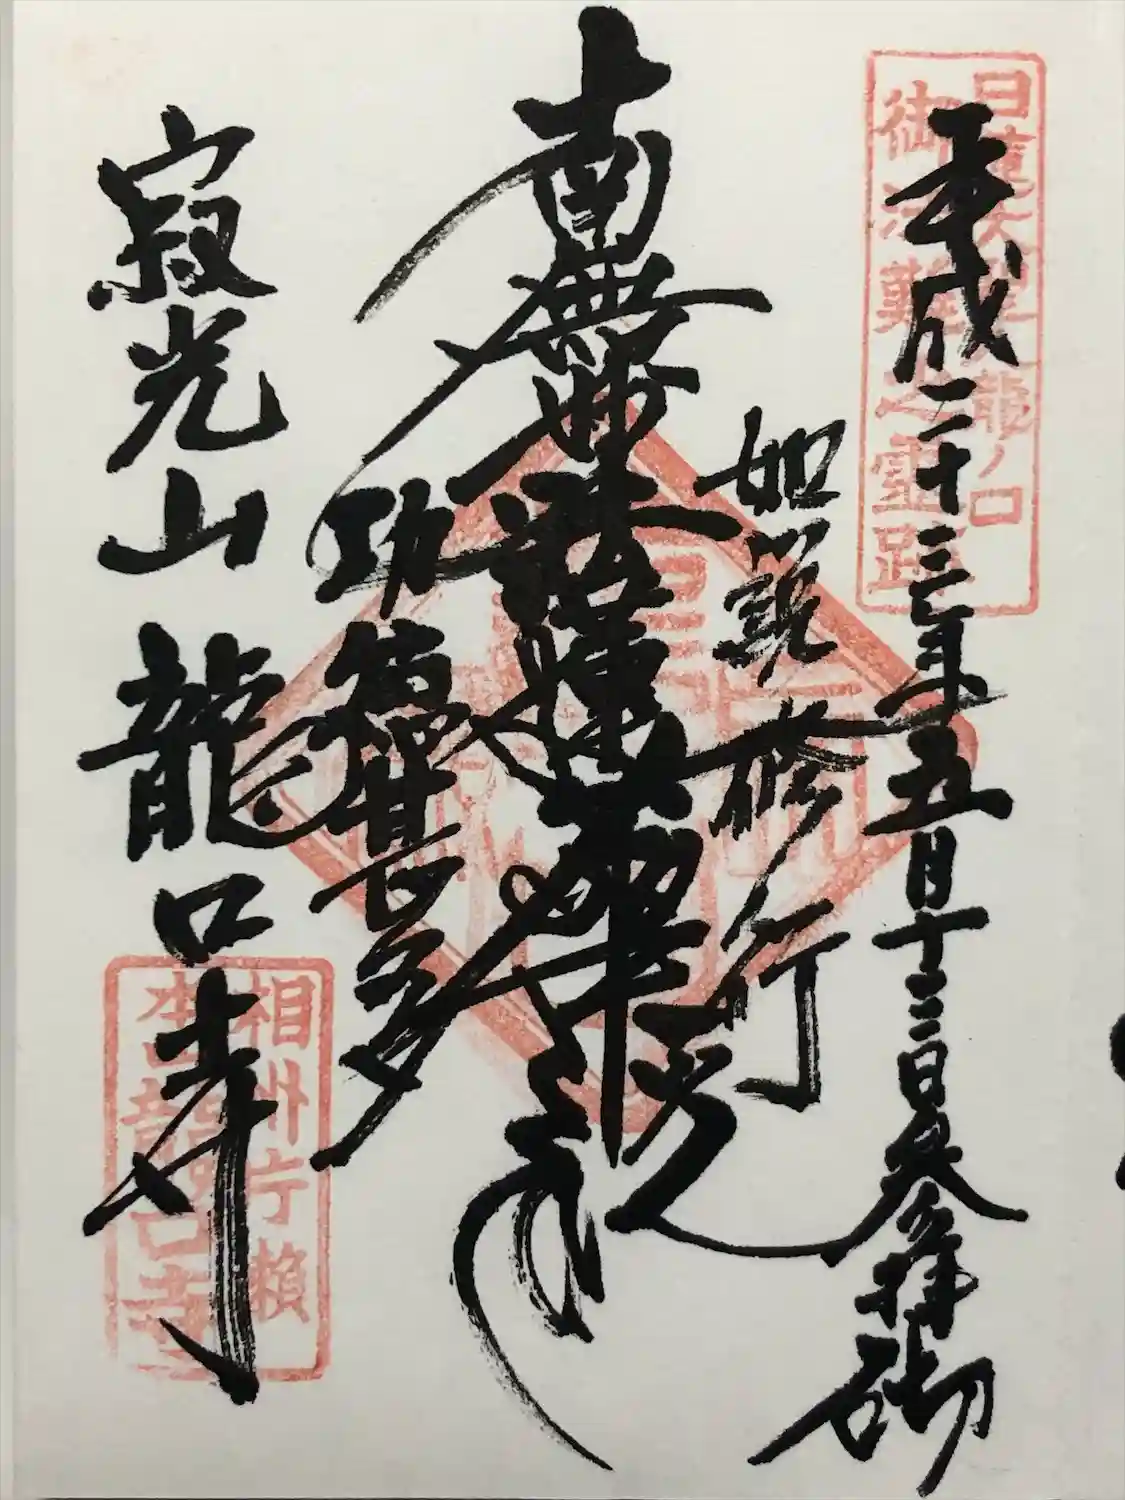 日蓮大聖人龍ノ口
御法難之霊跡
平成二十三年五月十三日参拝
如説修行
南無妙法蓮華経
功徳甚多
寂光山龍口寺
相州片瀬
本山龍口寺